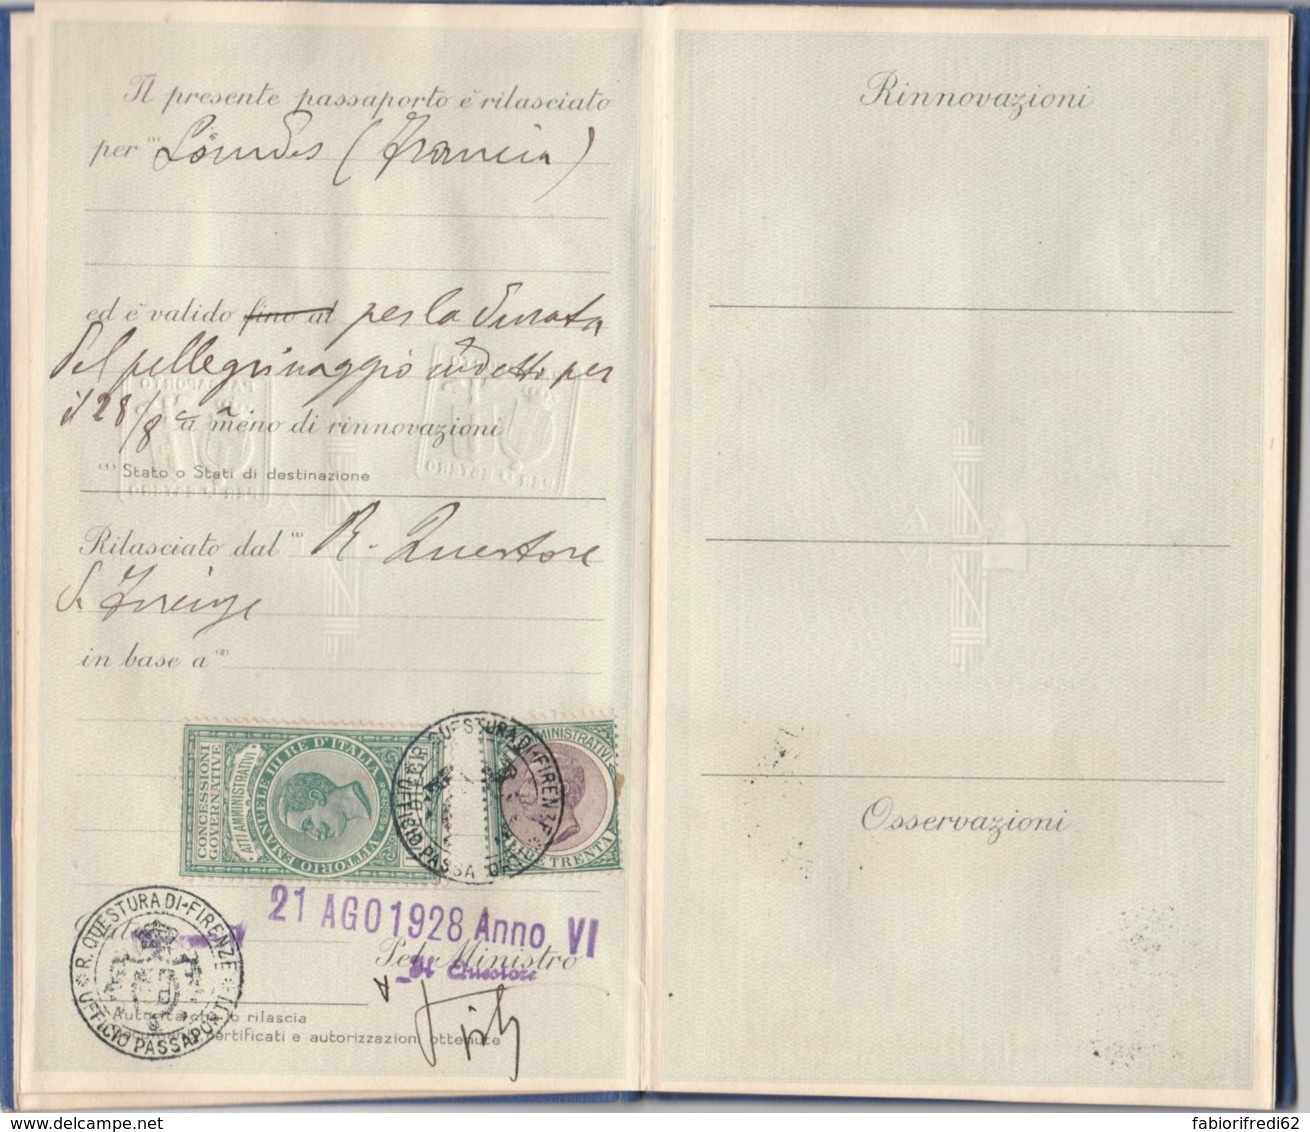 Il presente passaporto è rilasciato
per (1) Lourdes (Francia)
ed è valido fino al per la durata
del pellegrinaggio indetto per
il 28/8 a meno di rinnovazioni
(1) Stato o Stati di destinazione
Rilasciato dal (1) R. Questore
di Firenze
in base a (2)
CONCESSIONI
GOVERNATIVE
ATTI AMMINISTRATIVI
VITTORIO EMANUELE III RE D'ITALIA
MINISTRATIVI
TRENTA
R. QUESTURA DI FIRENZE
UFFICIO PASSAPORTI
21 AGO 1928 Anno VI
Pel Ministro
Il Questore
R. QUESTURA DI FIRENZE
UFFICIO PASSAPORTI
Autorità che lo rilascia
certificati e autorizzazioni ottenute
Rinnovazioni
Osservazioni
www.delcampe.net
fabiorifredi62